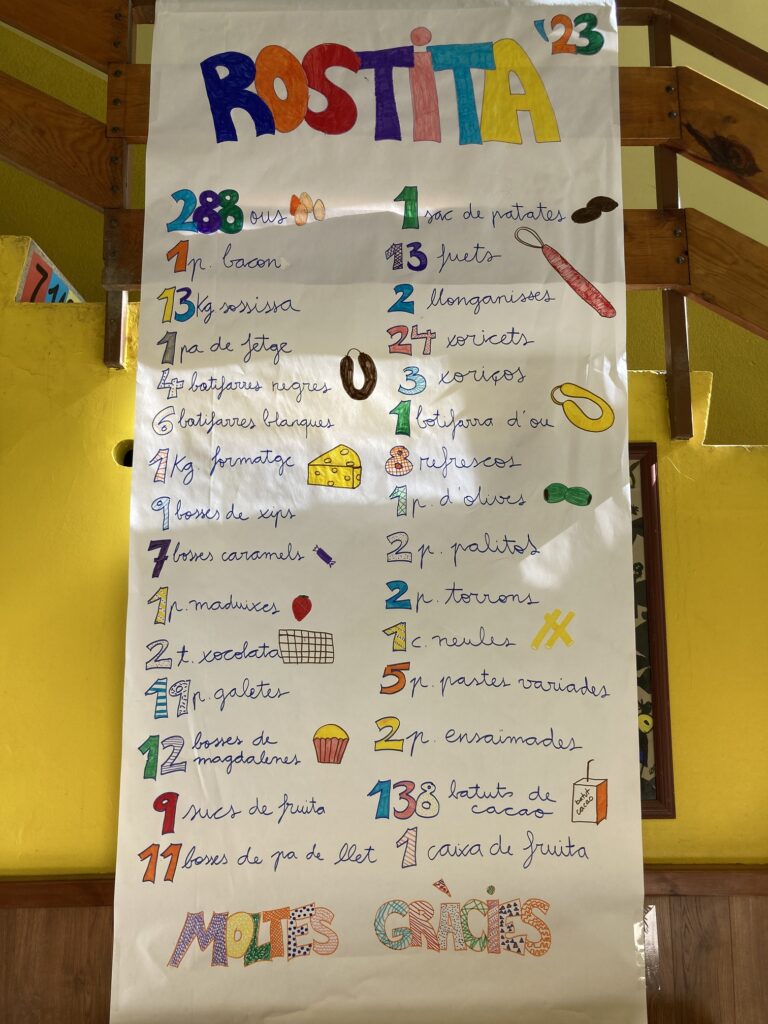 ROSTITA '23
288 ous
1 p. bacon
13 Kg sossissa
1 pa de fetge
4 botifarres negres
6 botifarres blanques
1 Kg. formatge
9 bosses de xips
7 bosses caramels
1 p. maduixes
2 t. xocolata
19 p. galetes
12 bosses de
magdalenes
9 sucs de fruita
11 bosses de pa de llet
1 sac de patates
13 fuets
2 llonganisses
24 xoricets
3 xoriços
1 botifarra d'ou
8 refrescos
1 p. d'olives
2 p. palitos
2 p. torrons
1 c. neules
5 p. pastes variades
2 p. ensaimades
138 batuts de
cacao
batut
cacao
1 caixa de fruita
MOLTES GRÀCIES
7